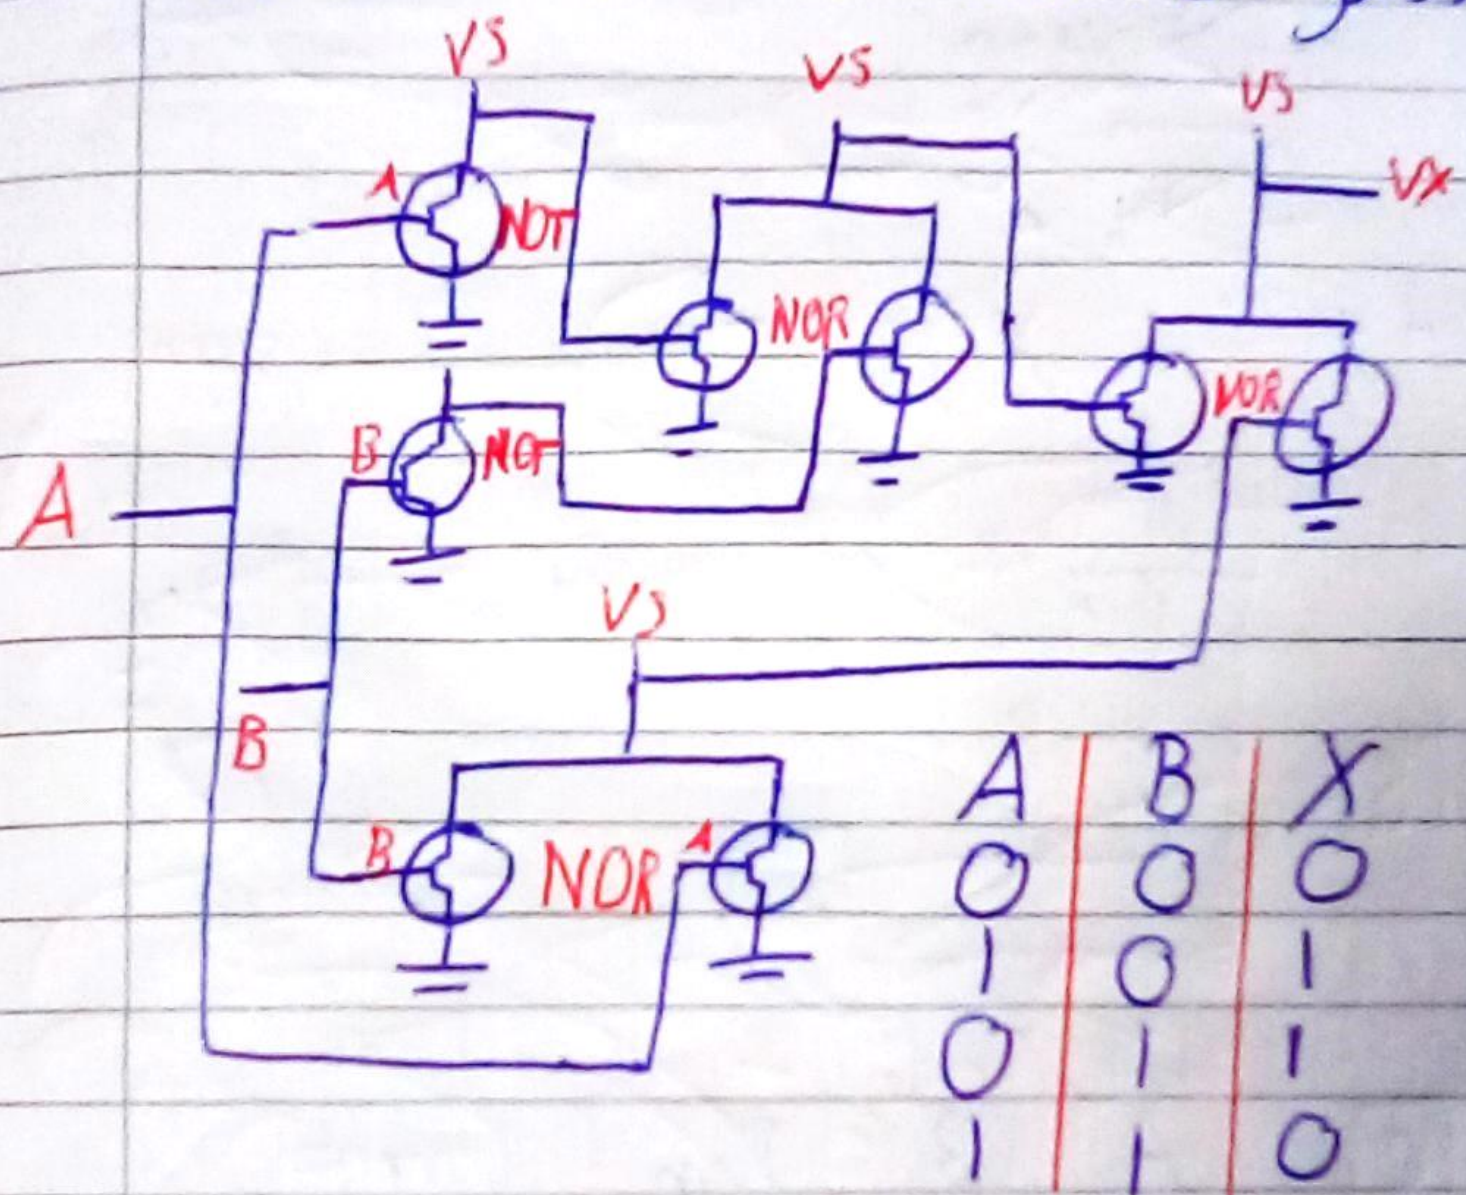 VS
VS
VS
VX
A
NOT
NOR
NOR
B
NOT
A
VS
B
B
NOR
A
A B X
0 0 0
1 0 1
0 1 1
1 1 0